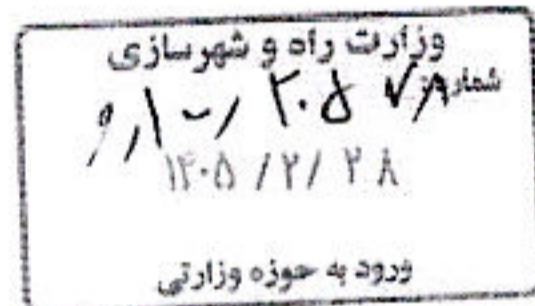 وزارت راه و شهرسازی
شماره
۱۴۰۵/۲/۲۸
ورود به حوزه وزارتی